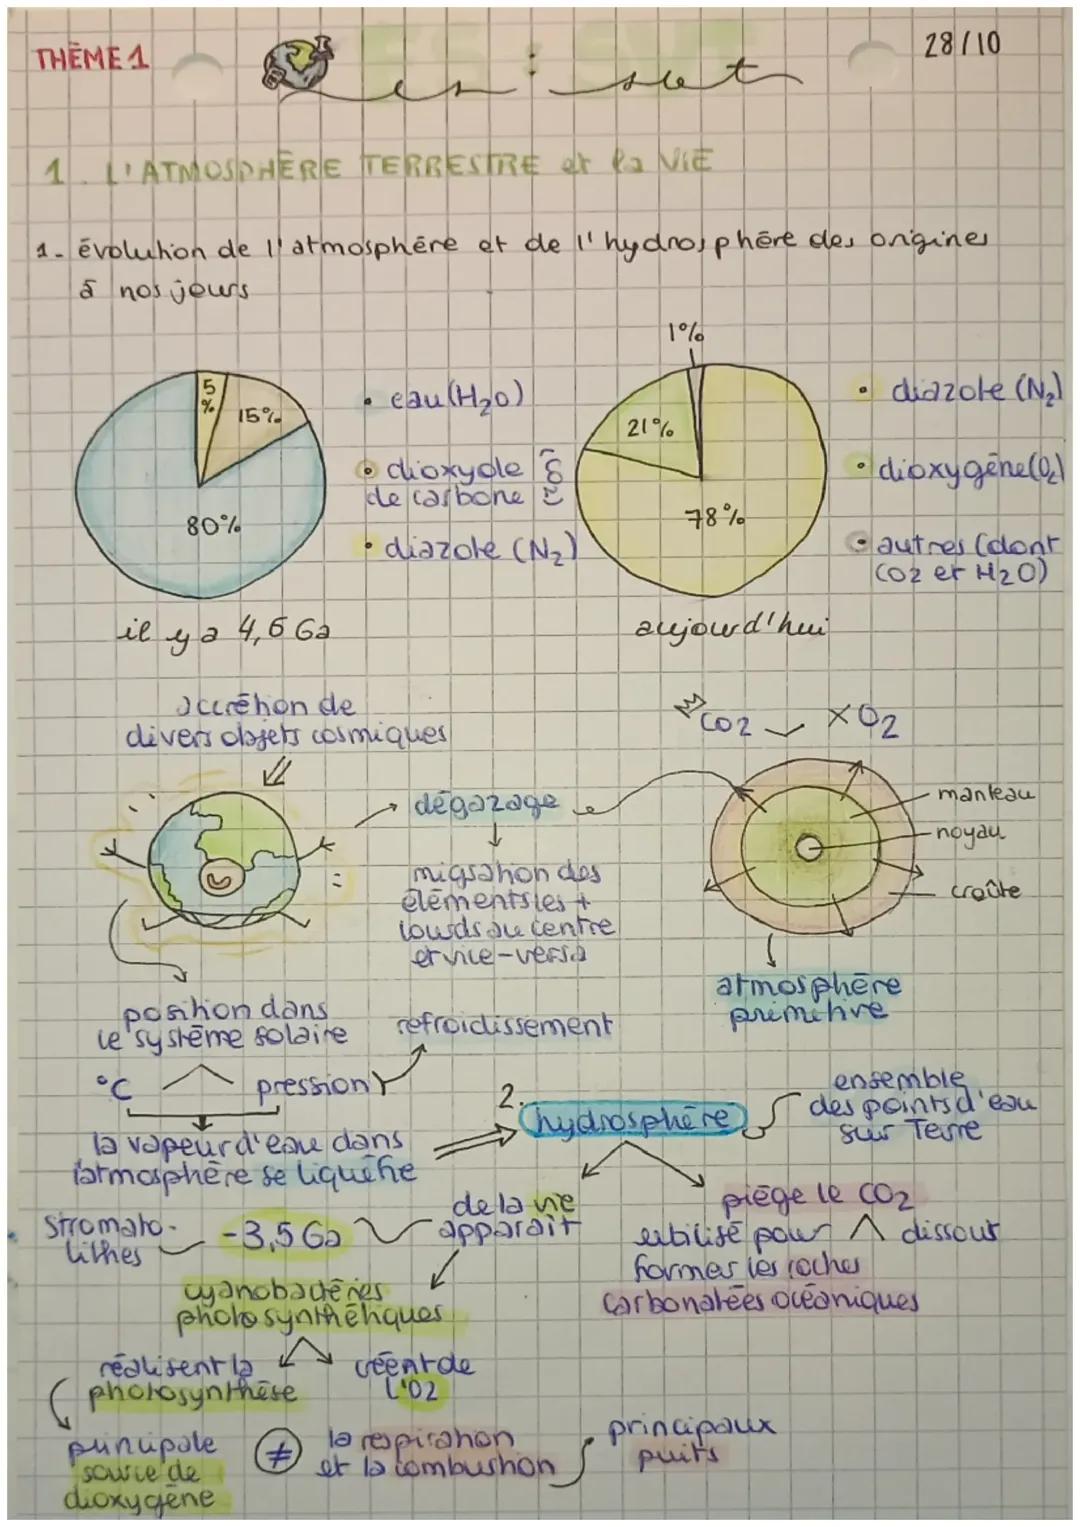 THÈME 1
28/10
es : svt
1. L'ATMOSPHÈRE TERRESTRE et la VIE
1- évolution de l'atmosphère et de l'hydrosphère des origines
à nos jours
5%
15%
80%
il y a 4,6 Ga
• eau (H2O)
• dioxyde de carbone (CO2)
• diazote (N2)
1%
21%
78%
aujourd'hui
• diazote (N2)
• dioxygène (O2)
• autres (dont
CO2 et H2O)
accrétion de
divers objets cosmiques
dégazage
migration des
éléments les +
lourds au centre
et vice-versa
CO2
X O2
manteau
noyau
croûte
atmosphère
primitive
position dans
le système solaire
°C
pression
refroidissement
la vapeur d'eau dans
l'atmosphère se liquéfie
2. hydrosphère
ensemble
des points d'eau
sur Terre
de la vie
apparaît
-3,5 Ga
stromato-
lithes
piège le CO2
utilisé pour
former les roches
carbonatées océaniques
dissout
cyanobactéries
photosynthétiques
réalisent la
photosynthèse
créent de
l'O2
principale
source de
dioxygène
≠
la respiration
et la combustion
principaux
puits